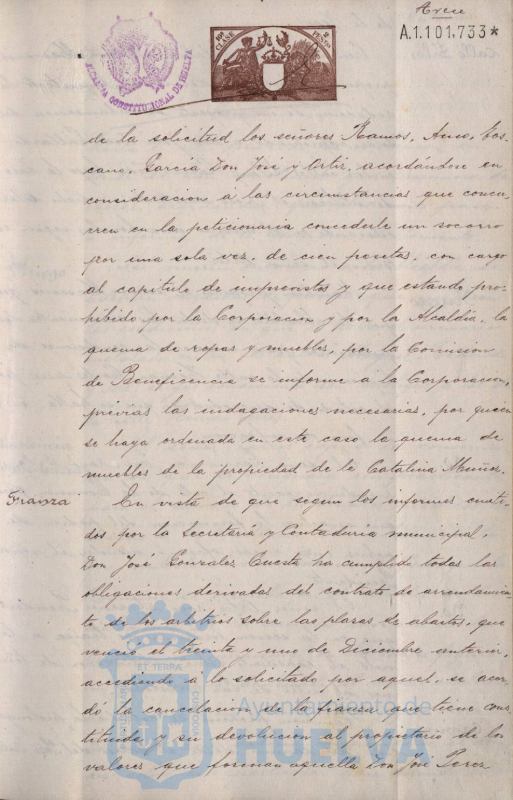 Once
A.1.101.733*
ALCALDÍA CONSTITUCIONAL DE HUELVA
10ª CLASE
2 PESETAS
de la solicitud los señores Ramos, Amo, Tos
cano, García Don José y Ortiz, acordándose en
consideracion á las circunstancias que concu,
rren en la peticionaria concederle un socorro
por una sola vez, de cien pesetas, con cargo
al capitulo de imprevistos y que estando pro,
hibido por la Corporacion y por la Alcaldia, la
quema de ropas y muebles, por la Comision
de Beneficencia se informe á la Corporacion,
previas las indagaciones necesarias, por quien
se haya ordenado en este caso la quema de
muebles de la propiedad de la Catalina Muñoz.
Fianza
En vista de que segun los informes emiti,
dos por la Secretaría y Contaduría municipal,
Don José Gonzalez Cuesta ha cumplido todas las
obligaciones derivadas del contrato de arrendamien,
to de los arbitrios sobre las plazas de abastos, que
venció el treinta y uno de Diciembre anterior,
accediendo á lo solicitado por aquel, se acor,
dó la cancelacion de la fianza que tiene cons
tituida y su devolucion al propietario de los
valores que forman aquella Don José Perez
Ayuntamiento de
HUELVA